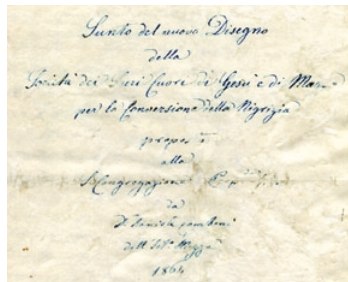 Sunto del nuovo Disegno
della
Società dei Sacri Cuori di Gesù e di Maria
per la Conversione della Nigrizia
proposto
alla
S. Congregazione
da
D. Daniele Comboni
dell' Ist.º Mazza
1864